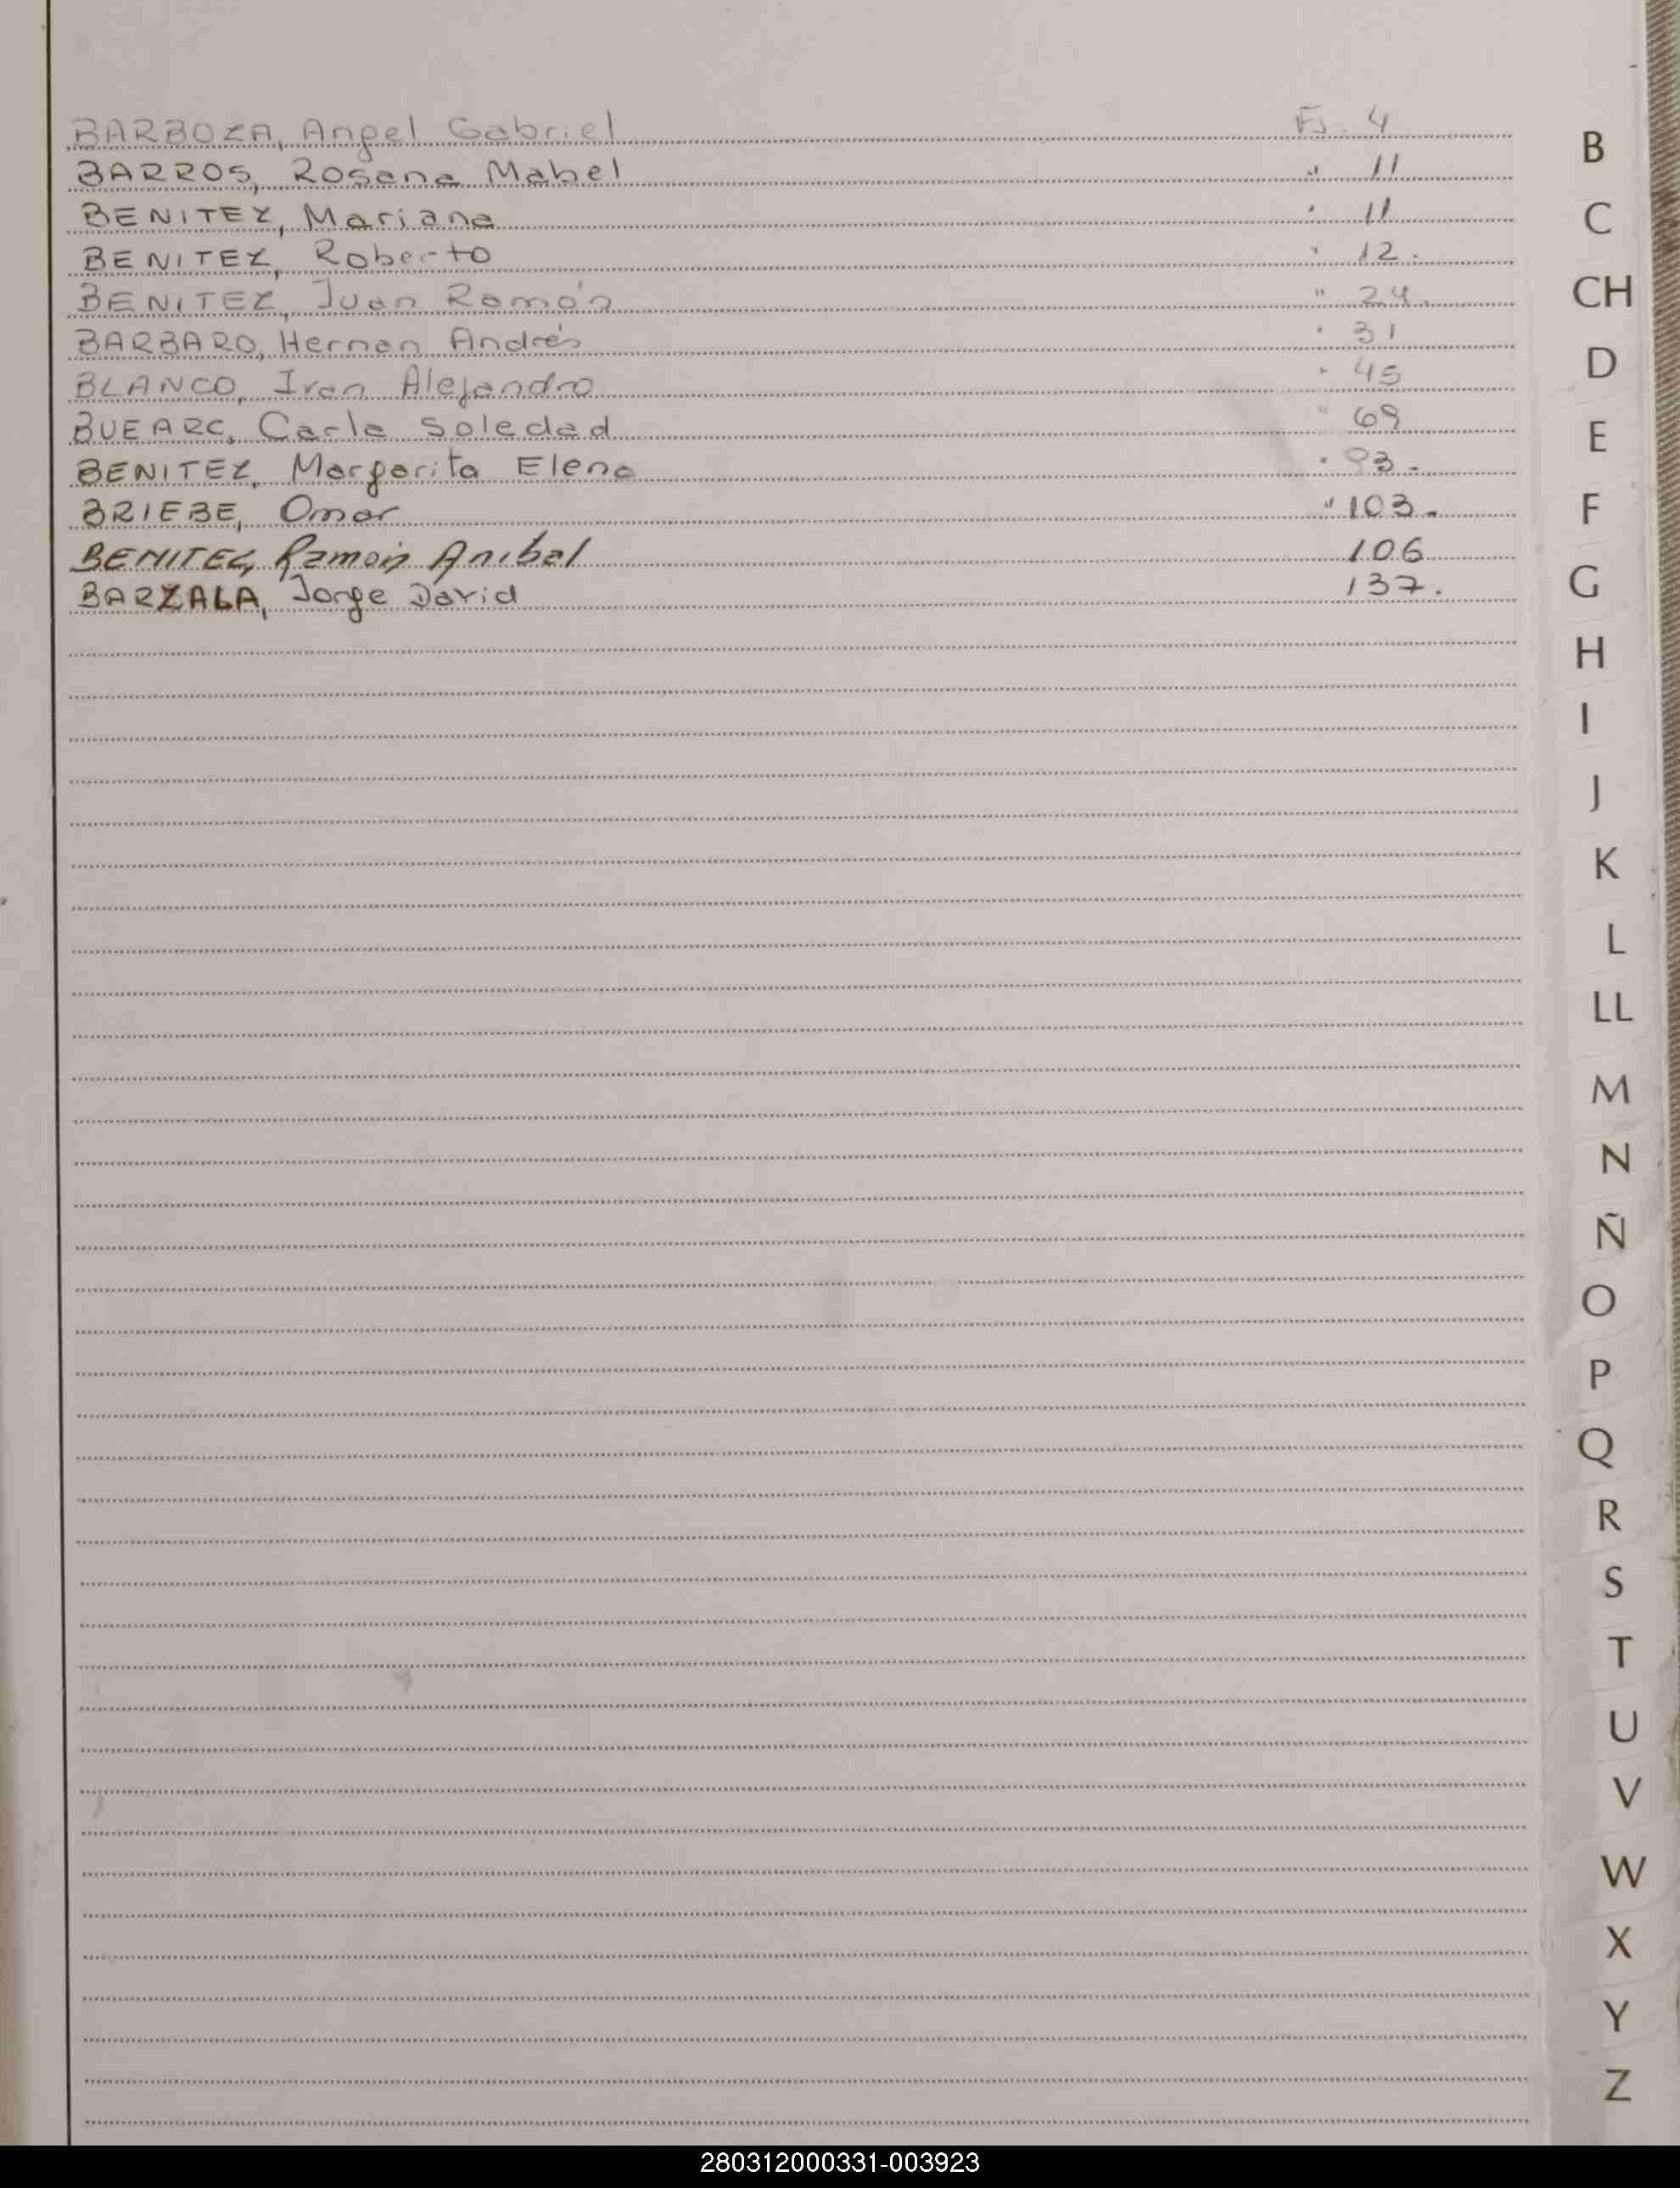 BARBOZA, Angel Gabriel Fs. 4
BARROS, Rosana Mabel " 11
BENITEZ, Mariana " 11
BENITEZ, Roberto " 12.
BENITEZ, Juan Ramón " 24.
BARBARO, Hernan Andrés " 31
BLANCO, Ivan Alejandro " 45
BUEARC, Carla Soledad " 69
BENITEZ, Margarita Elena " 93.
BRIEBE, Omar " 103.
BENITEZ, Ramón Anibal 106
BARZALA, Jorge David 137.
B
C
CH
D
E
F
G
H
I
J
K
L
LL
M
N
Ñ
O
P
Q
R
S
T
U
V
W
X
Y
Z
280312000331-003923